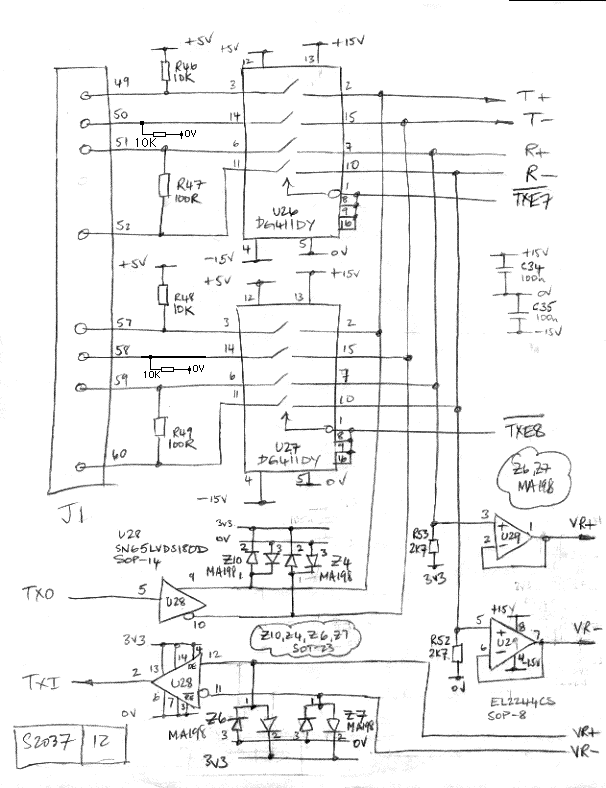 +5V
+5V
+15V
R46
10K
12
13
49
3
2
T+
50
14
15
T-
10K
0V
51
6
7
R+
11
10
R-
R47
100R
1
8
9
16
TXE7
U26
DG411DY
52
4
5
0V
-15V
+15V
C34
100n
0V
C35
100n
-15V
+5V
+5V
+15V
R48
10K
12
13
57
3
2
58
14
15
10K
0V
59
6
7
11
10
R49
100R
1
8
9
16
TXE8
U27
DG411DY
60
4
5
0V
-15V
J1
Z6, Z7
MA198
U28
SN65LVDS180D
SOP-14
3V3
0V
2
3
2
3
Z10
MA198
1
1
Z4
MA198
R53
2K7
3V3
3
2
1
U29
VR+
TXO
5
U28
9
10
Z10, Z4, Z6, Z7
SOT-23
R52
2K7
0V
+15V
5
6
8
7
U29
4
-15V
VR-
EL2244CS
SOP-8
3V3
13
14
4
DE
12
TXI
2
U28
11
6
7
3
RE
0V
Z6
MA198
1
3
2
1
3
2
Z7
MA198
0V
3V3
VR+
VR-
S2037
12